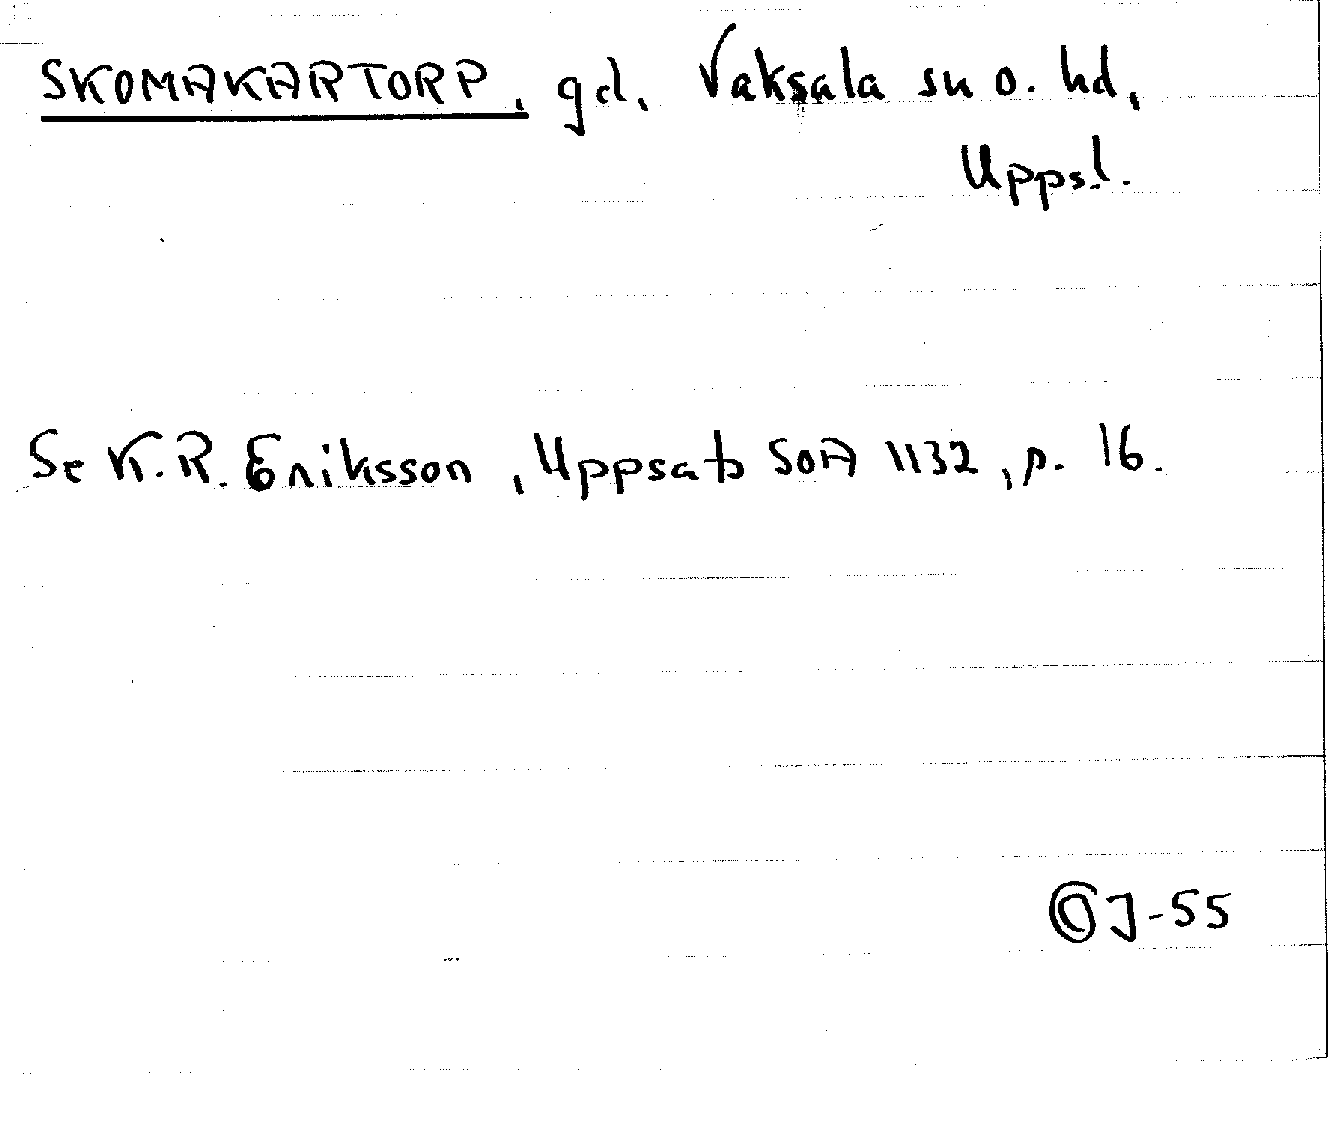 SKOMAKARTORP, gd, Vaksala sn o. hd,
Uppsl.
Se K.R. Eriksson, Uppsats SOA 1132, p. 16.
J-55